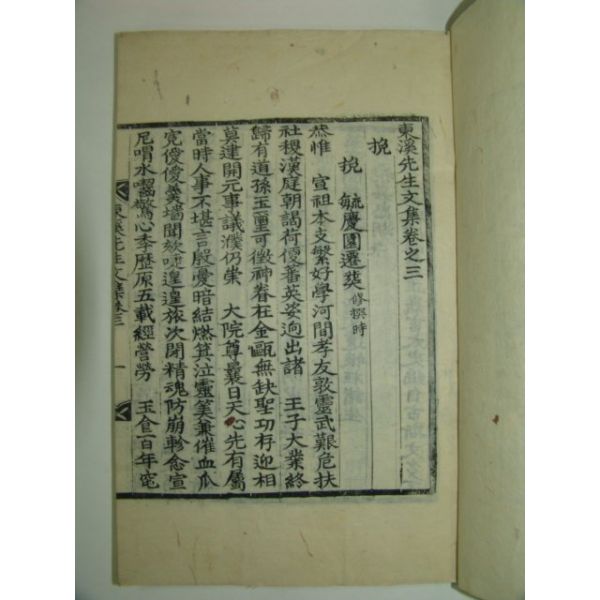 東溪先生文集卷之三
挽
挽 毓慶園遷葬 修撰時
恭惟 宣祖本支繁好學河間孝友敦靈武艱危扶
社稷漢庭朝謁荷優蕃英姿逈出諸 王子大業終
歸有道孫玉璽可徵神眷在金甌無缺聖功存迎相
莫建開元事議濮仍崇 大院尊曩日天心先有屬
當時人事不堪言殷憂暗結燃箕泣靈筭兼催血瓜
寃僾僾羹墻聞欬唾遑遑旅次閟精魂防崩軫念宣
尼喟水囓驚心季歷原五載經營勞 玉食百年窀
東溪先生文集卷三 一